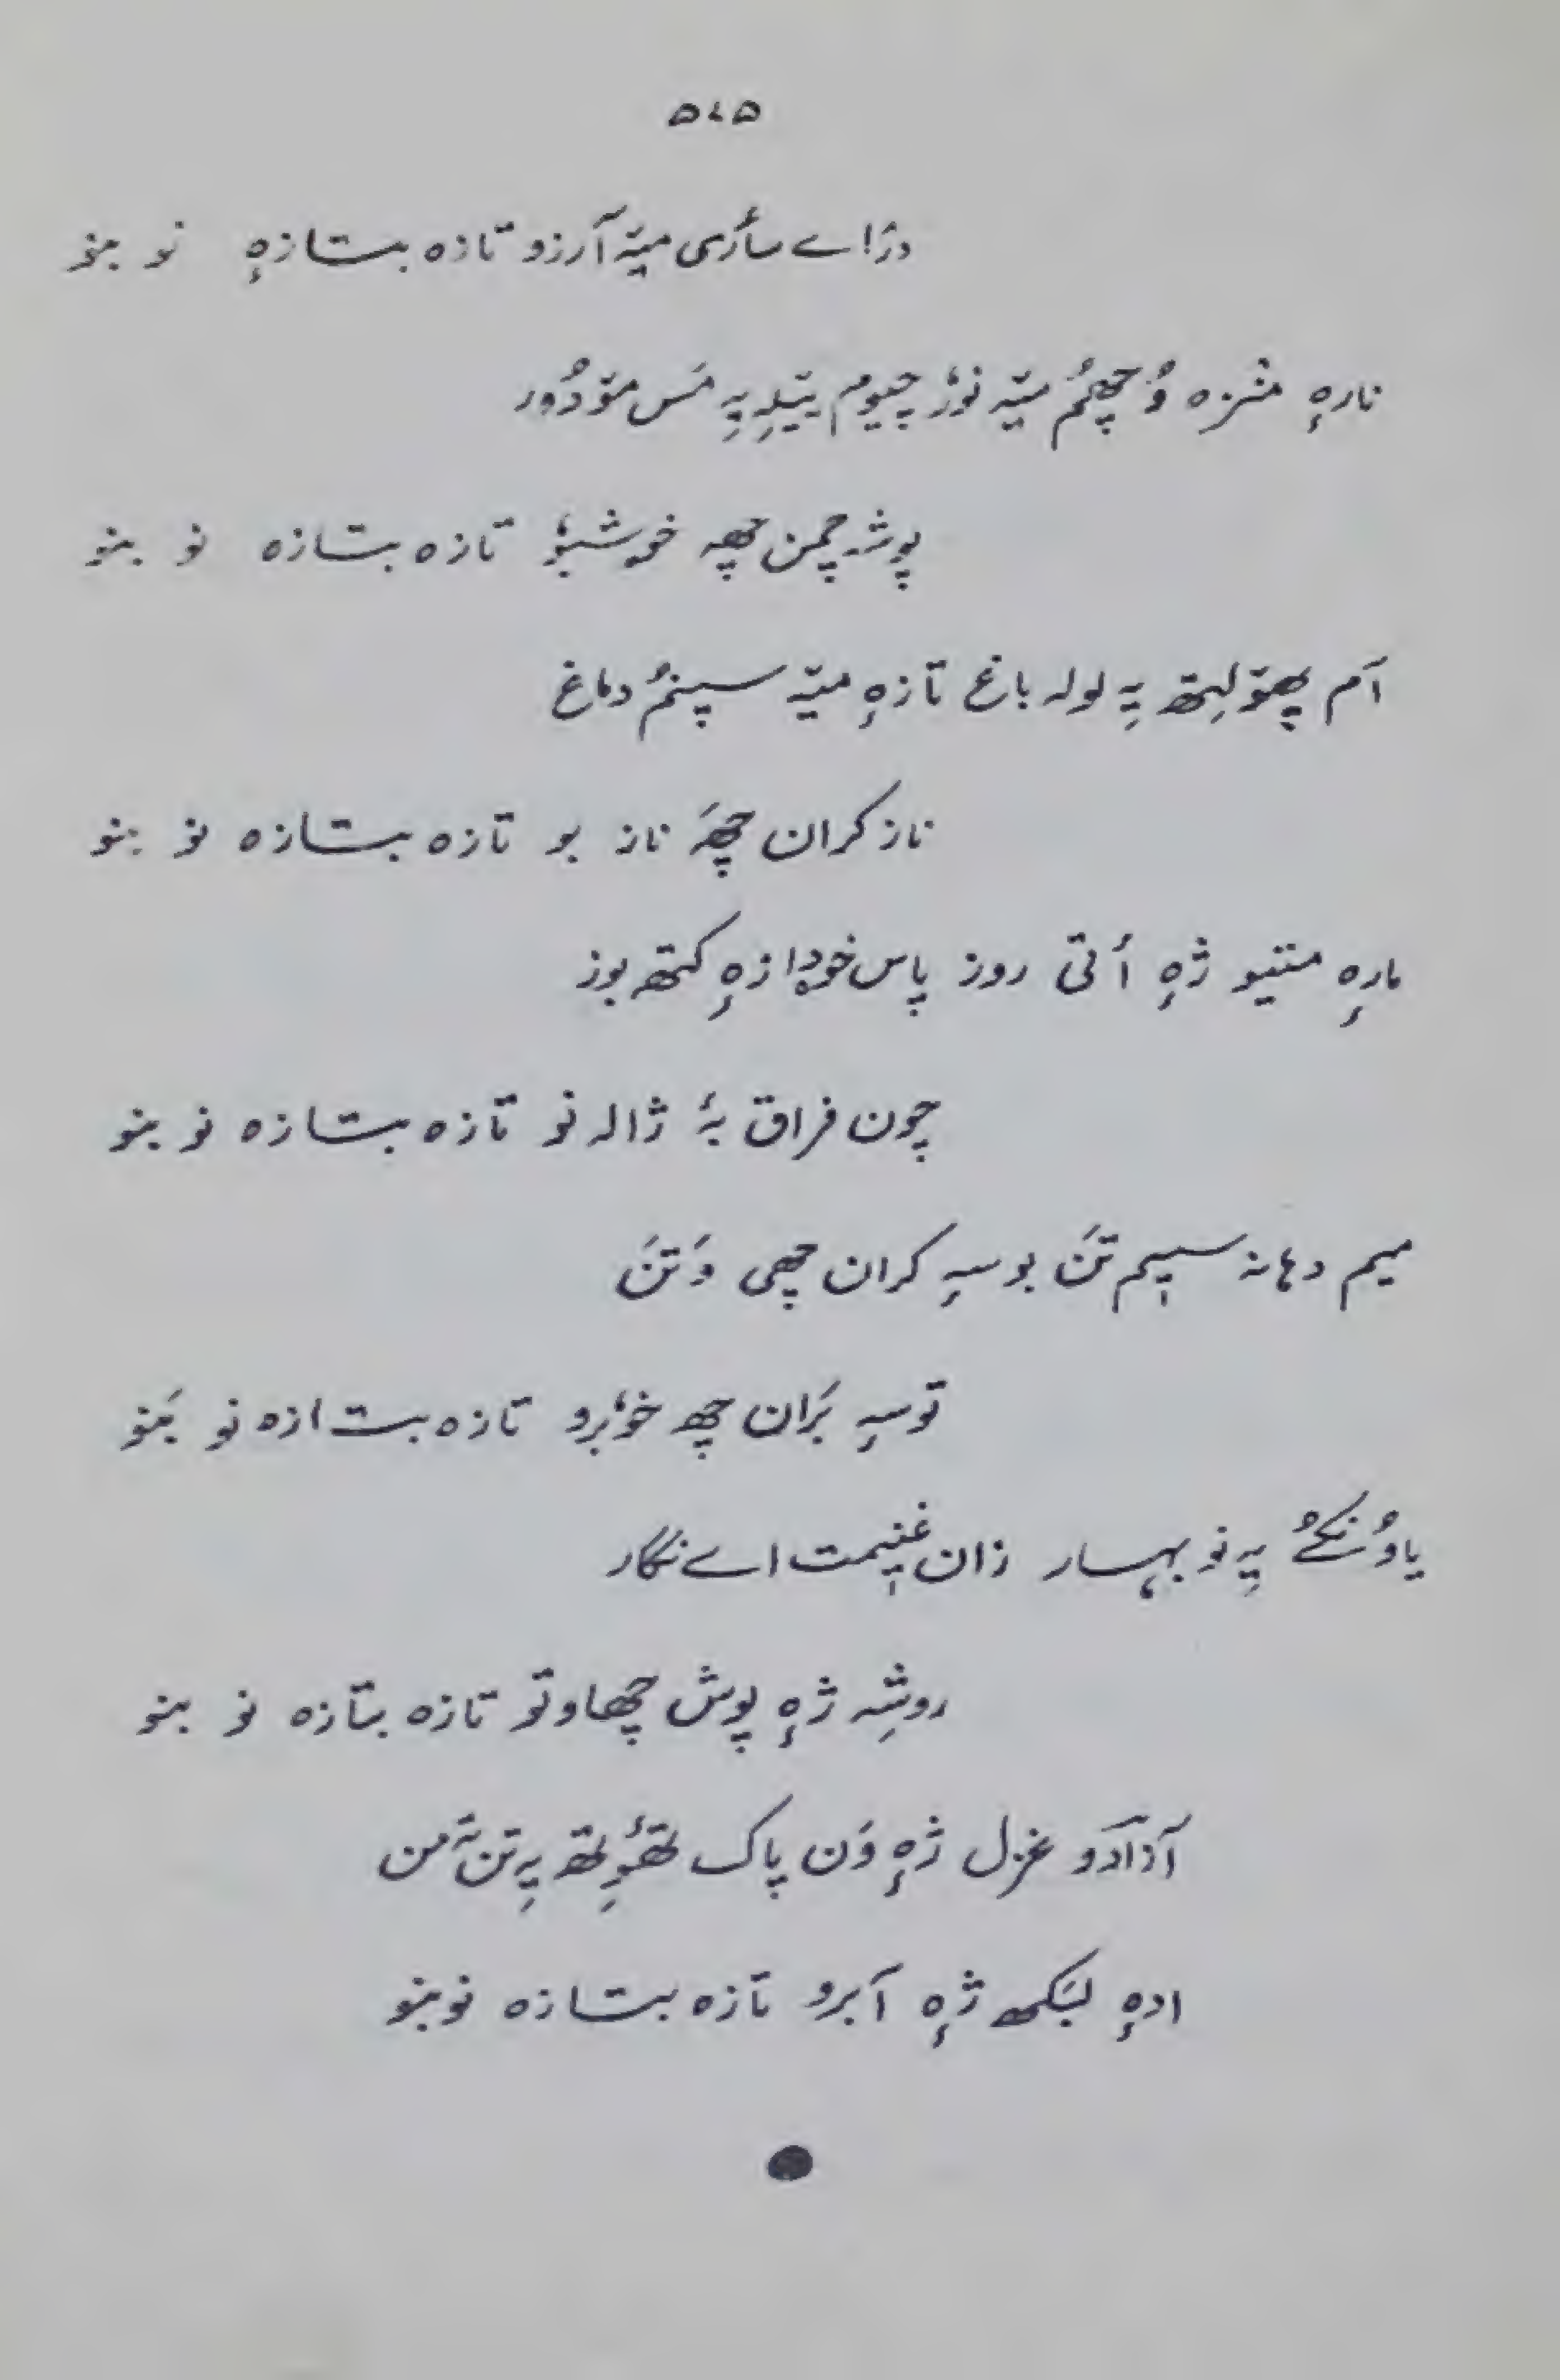 ۵۷۵
دژا اے سأری میٛتہٕ آرزو تازہ بتازہٕ نو بنو
نارہٕ منزہ وٕ چھُم میٛتہٕ نوٗر چیوم یتیلہِ یہِ مَس متو دُور
پوشہ چمن چھہ خوشبوٗ تازہ بتازہ نو بنو
آم پھۆلِتھ یہِ لولہ باغ تازہٕ میٛتہٕ سپنُم دماغ
ناز کران چھَہ ناز بو تازہ بتازہ نو بنو
مارہٕ متیو ژہٕ أتی روز پاس خۄدا زہٕ کتھ بوز
چون فراق بہٕ ژالہ نو تازہ بتازہ نو بنو
میم دہانہ سیٖم تَن بوسہِ کران چھی وَتَن
توسہِ بَران چھہ خوٗبرو تازہ بتازہ نو بَنو
یاوُنُکُے یہِ نو بہار زان غنیٖمت اے نگار
روشِہ ژہٕ پوش چھاوتو تازہ بتازہ نو بنو
آزادو غزل ژہٕ وَن پاک تھٔوِتھ یہِ تن تہٕ من
ادہٕ لبَکھ ژہٕ آبرو تازہ بتازہ نو بنو